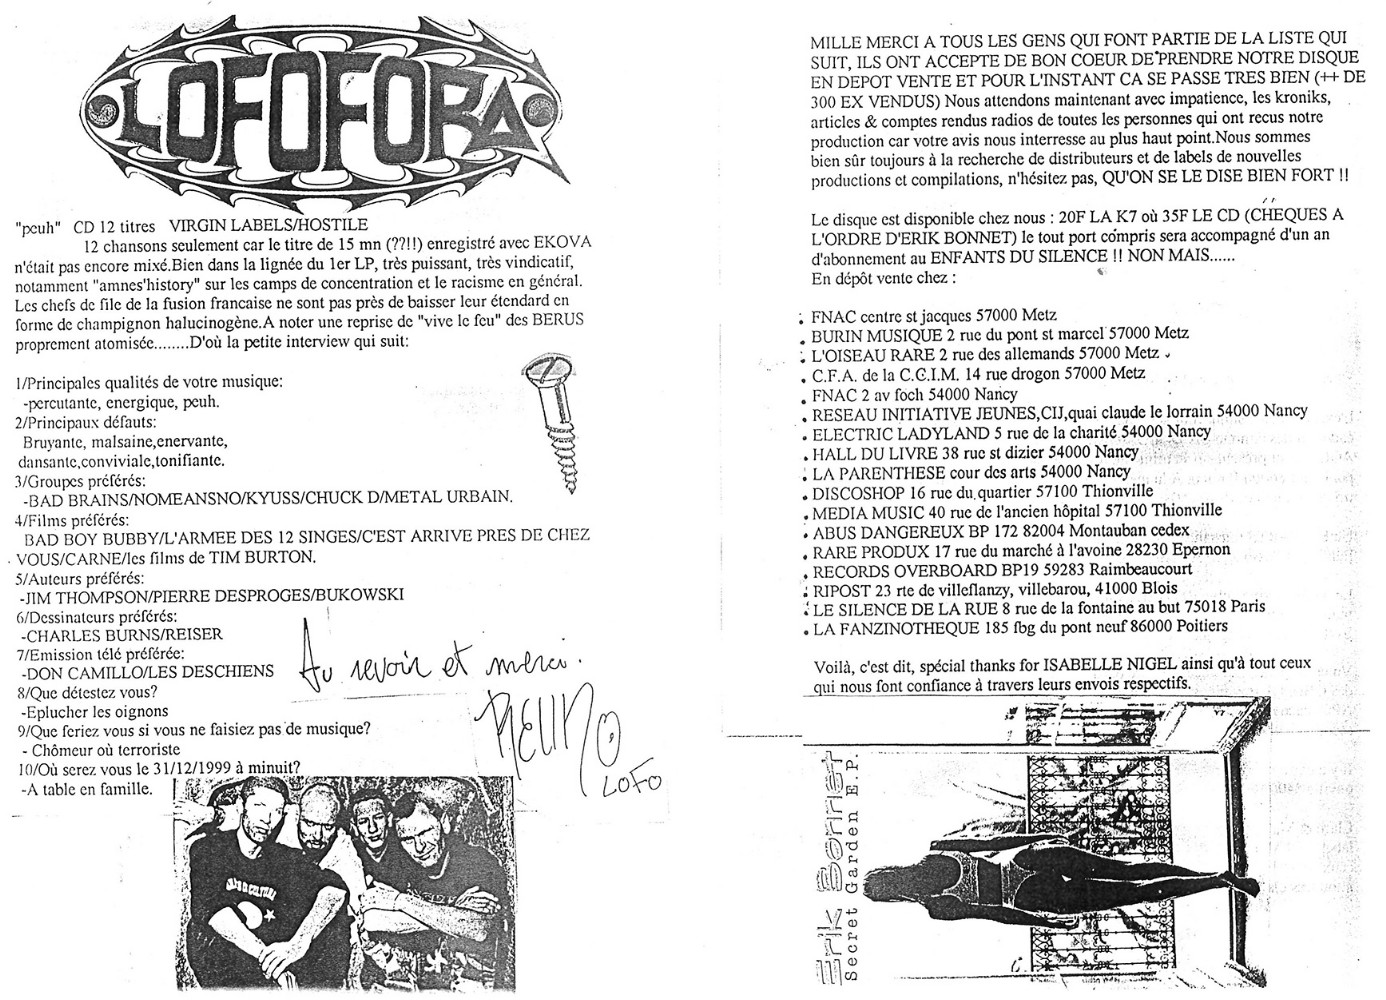 LOFOFORA
"peuh" CD 12 titres VIRGIN LABELS/HOSTILE
12 chansons seulement car le titre de 15 mn (??!!) enregistré avec EKOVA
n'était pas encore mixé.Bien dans la lignée du 1er LP, très puissant, très vindicatif,
notamment "amnes'history" sur les camps de concentration et le racisme en général.
Les chefs de file de la fusion francaise ne sont pas près de baisser leur étendard en
forme de champignon halucinogène.A noter une reprise de "vive le feu" des BERUS
proprement atomisée........D'où la petite interview qui suit:
1/Principales qualités de votre musique:
-percutante, energique, peuh.
2/Principaux défauts:
Bruyante, malsaine,enervante,
dansante,conviviale,tonifiante.
3/Groupes préférés:
-BAD BRAINS/NOMEANSNO/KYUSS/CHUCK D/METAL URBAIN.
4/Films préférés:
BAD BOY BUBBY/L'ARMEE DES 12 SINGES/C'EST ARRIVE PRES DE CHEZ
VOUS/CARNE/les films de TIM BURTON.
5/Auteurs préférés:
-JIM THOMPSON/PIERRE DESPROGES/BUKOWSKI
6/Dessinateurs préférés:
-CHARLES BURNS/REISER
7/Emission télé préférée:
-DON CAMILLO/LES DESCHIENS
8/Que détestez vous?
-Eplucher les oignons
9/Que feriez vous si vous ne faisiez pas de musique?
- Chômeur où terroriste
10/Où serez vous le 31/12/1999 à minuit?
-A table en famille.
Au revoir et merci.
REUNO
LOFO
MILLE MERCI A TOUS LES GENS QUI FONT PARTIE DE LA LISTE QUI
SUIT, ILS ONT ACCEPTE DE BON COEUR DE PRENDRE NOTRE DISQUE
EN DEPOT VENTE ET POUR L'INSTANT CA SE PASSE TRES BIEN (++ DE
300 EX VENDUS) Nous attendons maintenant avec impatience, les kroniks,
articles & comptes rendus radios de toutes les personnes qui ont recus notre
production car votre avis nous interresse au plus haut point.Nous sommes
bien sûr toujours à la recherche de distributeurs et de labels de nouvelles
productions et compilations, n'hésitez pas, QU'ON SE LE DISE BIEN FORT !!
Le disque est disponible chez nous : 20F LA K7 où 35F LE CD (CHEQUES A
L'ORDRE D'ERIK BONNET) le tout port compris sera accompagné d'un an
d'abonnement au ENFANTS DU SILENCE !! NON MAIS......
En dépôt vente chez :
. FNAC centre st jacques 57000 Metz
. BURIN MUSIQUE 2 rue du pont st marcel 57000 Metz
. L'OISEAU RARE 2 rue des allemands 57000 Metz
. C.F.A. de la C.C.I.M. 14 rue drogon 57000 Metz
. FNAC 2 av foch 54000 Nancy
. RESEAU INITIATIVE JEUNES,CIJ,quai claude le lorrain 54000 Nancy
. ELECTRIC LADYLAND 5 rue de la charité 54000 Nancy
. HALL DU LIVRE 38 rue st dizier 54000 Nancy
. LA PARENTHESE cour des arts 54000 Nancy
. DISCOSHOP 16 rue du quartier 57100 Thionville
. MEDIA MUSIC 40 rue de l'ancien hôpital 57100 Thionville
. ABUS DANGEREUX BP 172 82004 Montauban cedex
. RARE PRODUX 17 rue du marché à l'avoine 28230 Epernon
. RECORDS OVERBOARD BP19 59283 Raimbeaucourt
. RIPOST 23 rte de villeflanzy, villebarou, 41000 Blois
. LE SILENCE DE LA RUE 8 rue de la fontaine au but 75018 Paris
. LA FANZINOTHEQUE 185 fbg du pont neuf 86000 Poitiers
Voilà, c'est dit, spécial thanks for ISABELLE NIGEL ainsi qu'à tout ceux
qui nous font confiance à travers leurs envois respectifs.
Erik Bonnet
Secret Garden E.P.